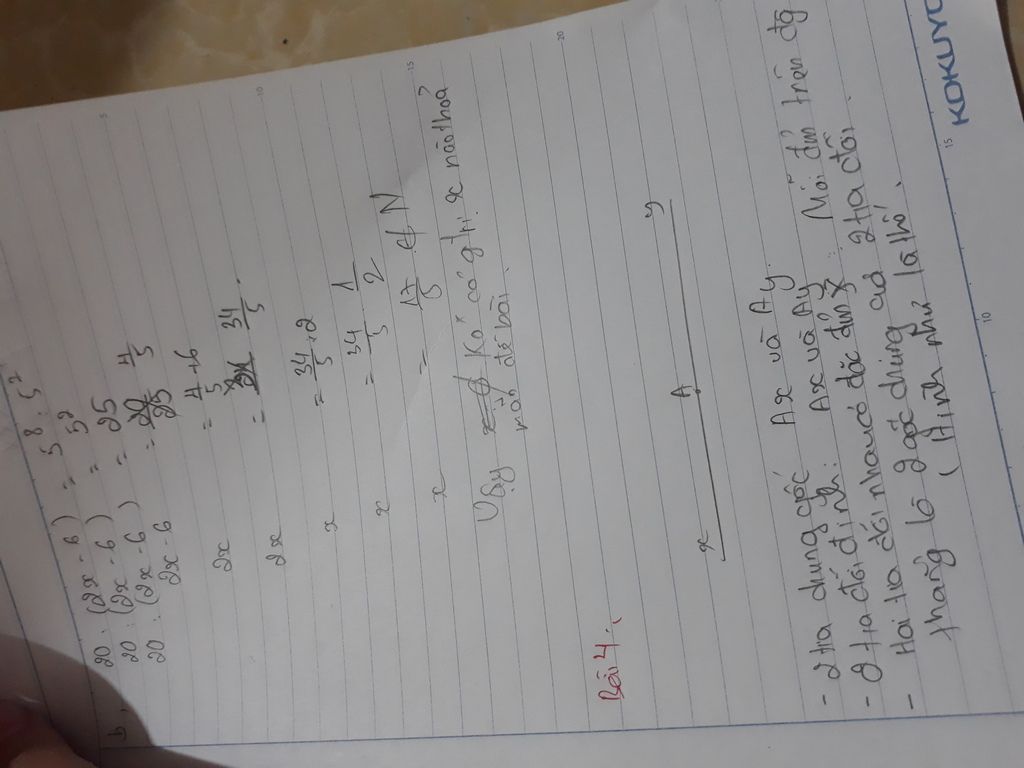 b,
20 : (2x - 6) = 5⁸ : 5²
20 : (2x - 6) = 5²
20 : (2x - 6) = 25
2x - 6 = 20/25 4/5
2x = 4/5 + 6
2x = 34/5
x = 34/5 : 2
x = 34/5 . 1/2
x = 17/5 ∉ N
Vậy Ko có g trị x nào thoả
mãn đề bài.
Bài 4:
x A y
- 2 tia chung gốc Ax và Ay
- 2 tia đối đỉnh: Ax và Ay
- Hai tia đối nhau có đặc điểm: Mỗi điểm trên đg
thẳng là gốc chung của 2 tia đối.
( Hình như là thế.
KOKUYO
5
10
15
20
10
15